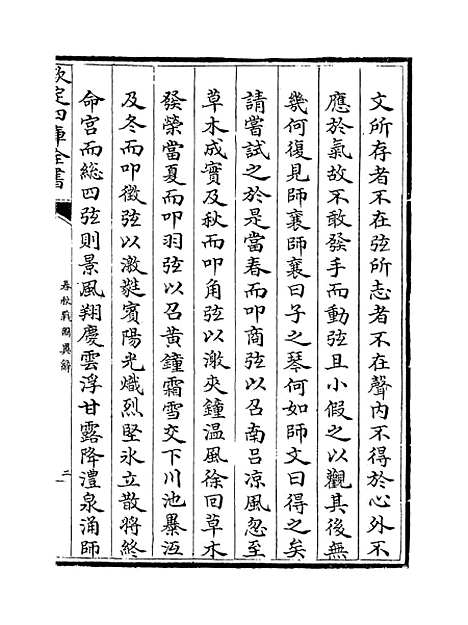 文所存者不在弦所志者不在聲内不得於心外不
應於氣故不敢發手而動弦且小假之以觀其後無
幾何復見師襄師襄曰子之琴何如師文曰得之矣
請嘗試之於是當春而叩商弦以召南吕凉風忽至
草木成實及秋而叩角弦以激夾鐘温風徐回草木
發榮當夏而叩羽弦以召黄鐘霜雪交下川池暴沍
及冬而叩徵弦以激蕤賓陽光熾烈堅氷立散將終
命宫而總四弦則景風翔慶雲浮甘露降澧泉涌師
欽定四庫全書
春秋戰國異辭